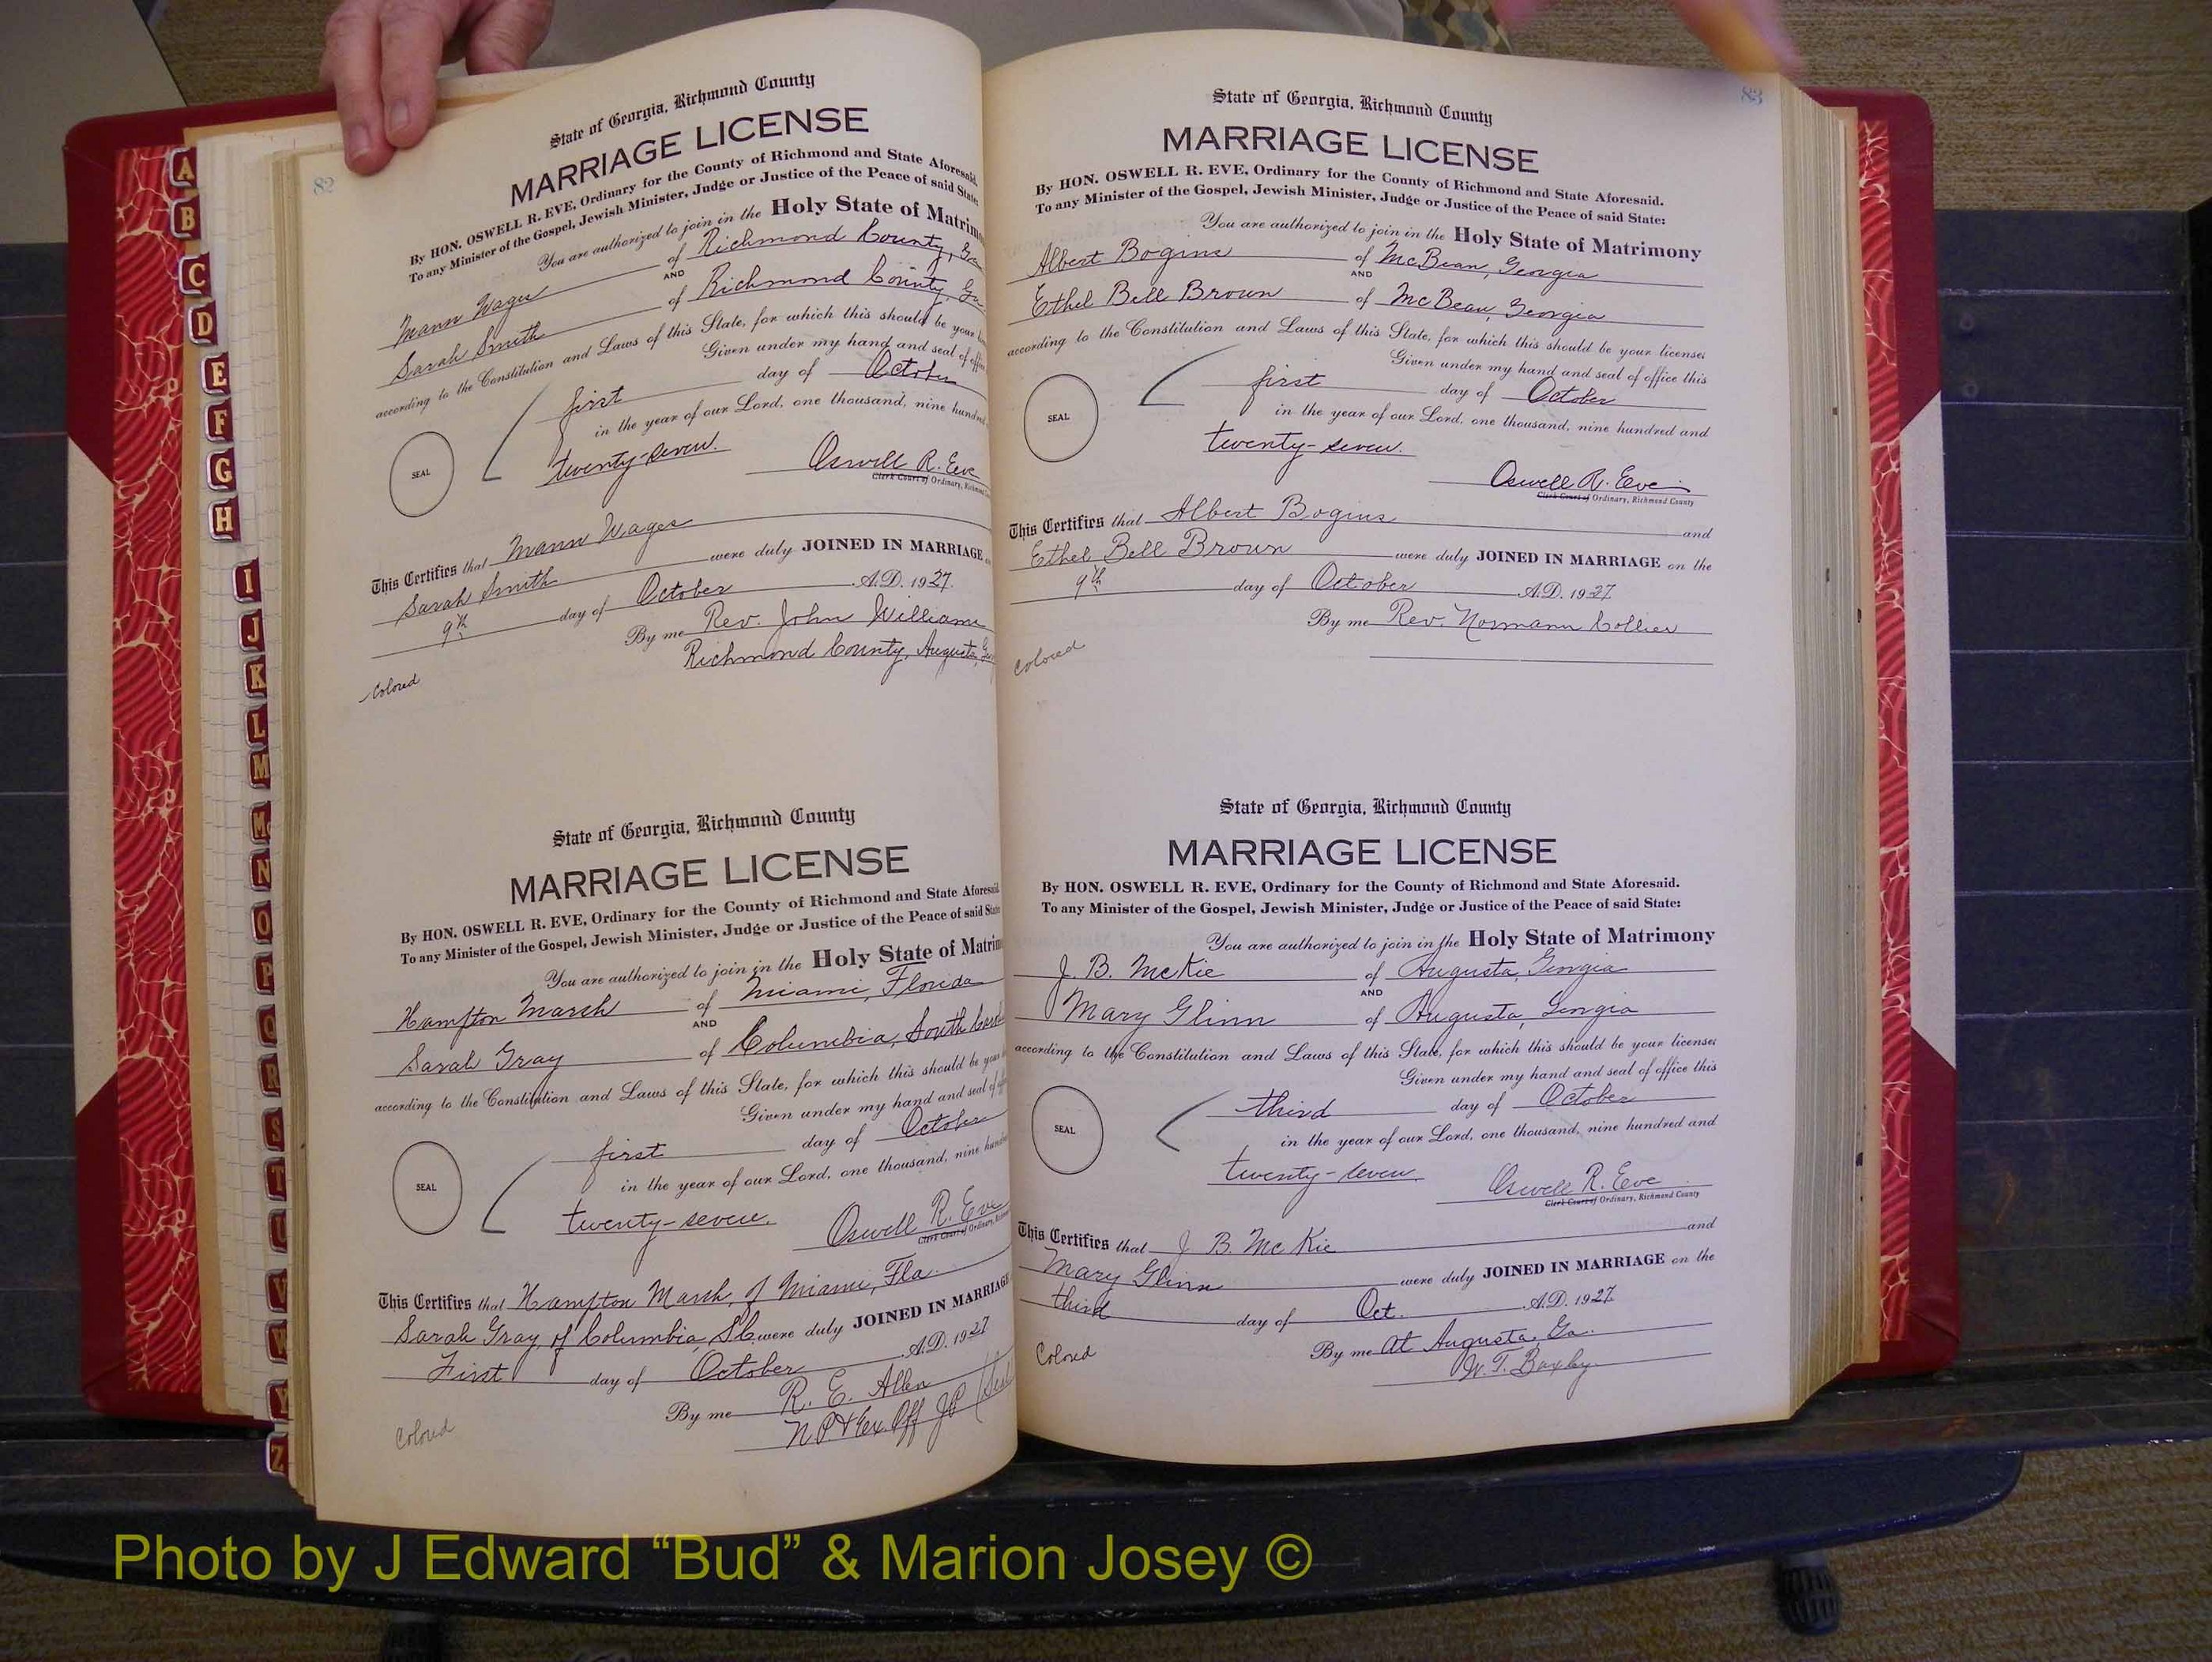 82
State of Georgia, Richmond County
MARRIAGE LICENSE
By HON. OSWELL R. EVE, Ordinary for the County of Richmond and State Aforesaid.
To any Minister of the Gospel, Jewish Minister, Judge or Justice of the Peace of said State
You are authorized to join in the Holy State of Matrim
Mann Wages of Richmond County, Ga
AND
Sarah Smith of Richmond County, Ga
according to the Constitution and Laws of this State, for which this should be your
Given under my hand and seal of
first day of October
in the year of our Lord, one thousand, nine hundred
twenty-seven.
SEAL
Oswell R. Eve
Clerk Court of Ordinary, Richmond
This Certifies that Mann Wages
Sarah Smith were duly JOINED IN MARRIAGE
9th day of October A.D. 1927.
By me Rev. John Williams
Richmond County, Augusta, Ga
Colored
State of Georgia, Richmond County
MARRIAGE LICENSE
By HON. OSWELL R. EVE, Ordinary for the County of Richmond and State Aforesaid.
To any Minister of the Gospel, Jewish Minister, Judge or Justice of the Peace of said State
You are authorized to join in the Holy State of Matrim
Hampton Marsh of Miami, Florida
AND
Sarah Gray of Columbia, South Caro
according to the Constitution and Laws of this State, for which this should be your
Given under my hand and seal of
first day of October
in the year of our Lord, one thousand, nine hundred
twenty-seven.
SEAL
Oswell R. Eve
Clerk Court of Ordinary,
This Certifies that Hampton Marsh, of Miami, Fla.
Sarah Gray, of Columbia, S.C. were duly JOINED IN MARRIAGE
First day of October A.D. 1927
By me R. E. Allen (Seal
N P & Ex. Off JP
Colored
83
State of Georgia, Richmond County
MARRIAGE LICENSE
By HON. OSWELL R. EVE, Ordinary for the County of Richmond and State Aforesaid.
To any Minister of the Gospel, Jewish Minister, Judge or Justice of the Peace of said State:
You are authorized to join in the Holy State of Matrimony
Albert Bogins of McBean, Georgia
AND
Ethel Bell Brown of McBean, Georgia
according to the Constitution and Laws of this State, for which this should be your license:
Given under my hand and seal of office this
first day of October
in the year of our Lord, one thousand, nine hundred and
twenty-seven.
SEAL
Oswell R. Eve
Clerk Court of Ordinary, Richmond County
This Certifies that Albert Bogins and
Ethel Bell Brown were duly JOINED IN MARRIAGE on the
9th day of October A.D. 1927
By me Rev. Normann Collier
Colored
State of Georgia, Richmond County
MARRIAGE LICENSE
By HON. OSWELL R. EVE, Ordinary for the County of Richmond and State Aforesaid.
To any Minister of the Gospel, Jewish Minister, Judge or Justice of the Peace of said State:
You are authorized to join in the Holy State of Matrimony
J. B. McKie of Augusta, Georgia
AND
Mary Glinn of Augusta, Georgia
according to the Constitution and Laws of this State, for which this should be your license:
Given under my hand and seal of office this
third day of October
in the year of our Lord, one thousand, nine hundred and
twenty-seven.
SEAL
Oswell R. Eve
Clerk Court of Ordinary, Richmond County
This Certifies that J B. McKie and
Mary Glinn were duly JOINED IN MARRIAGE on the
third day of Oct. A.D. 1927.
By me At Augusta, Ga.
W. T. Baxley
Colored
A
B
C
D
E
F
G
H
I
J
K
L
M
Mc
N
O
P
Q
R
S
T
U
V
W
Y
Z
Photo by J Edward “Bud” & Marion Josey ©